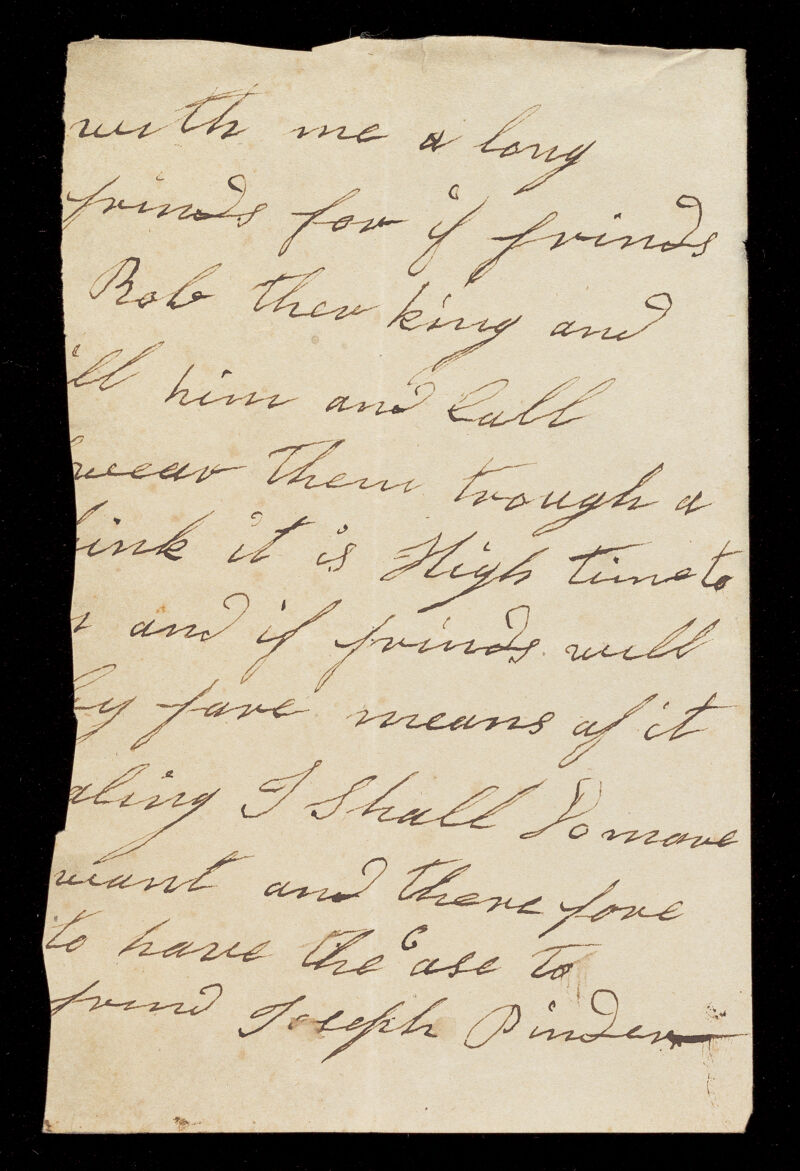 with me a long
frinds for if frinds
Rob ther king and
ill him and Call
wear them trough a
ink it is High time to
and if frinds will
by fare means of it
aling I Shall Do more
want and there fore
to have the Case to
frind Joseph Pinder